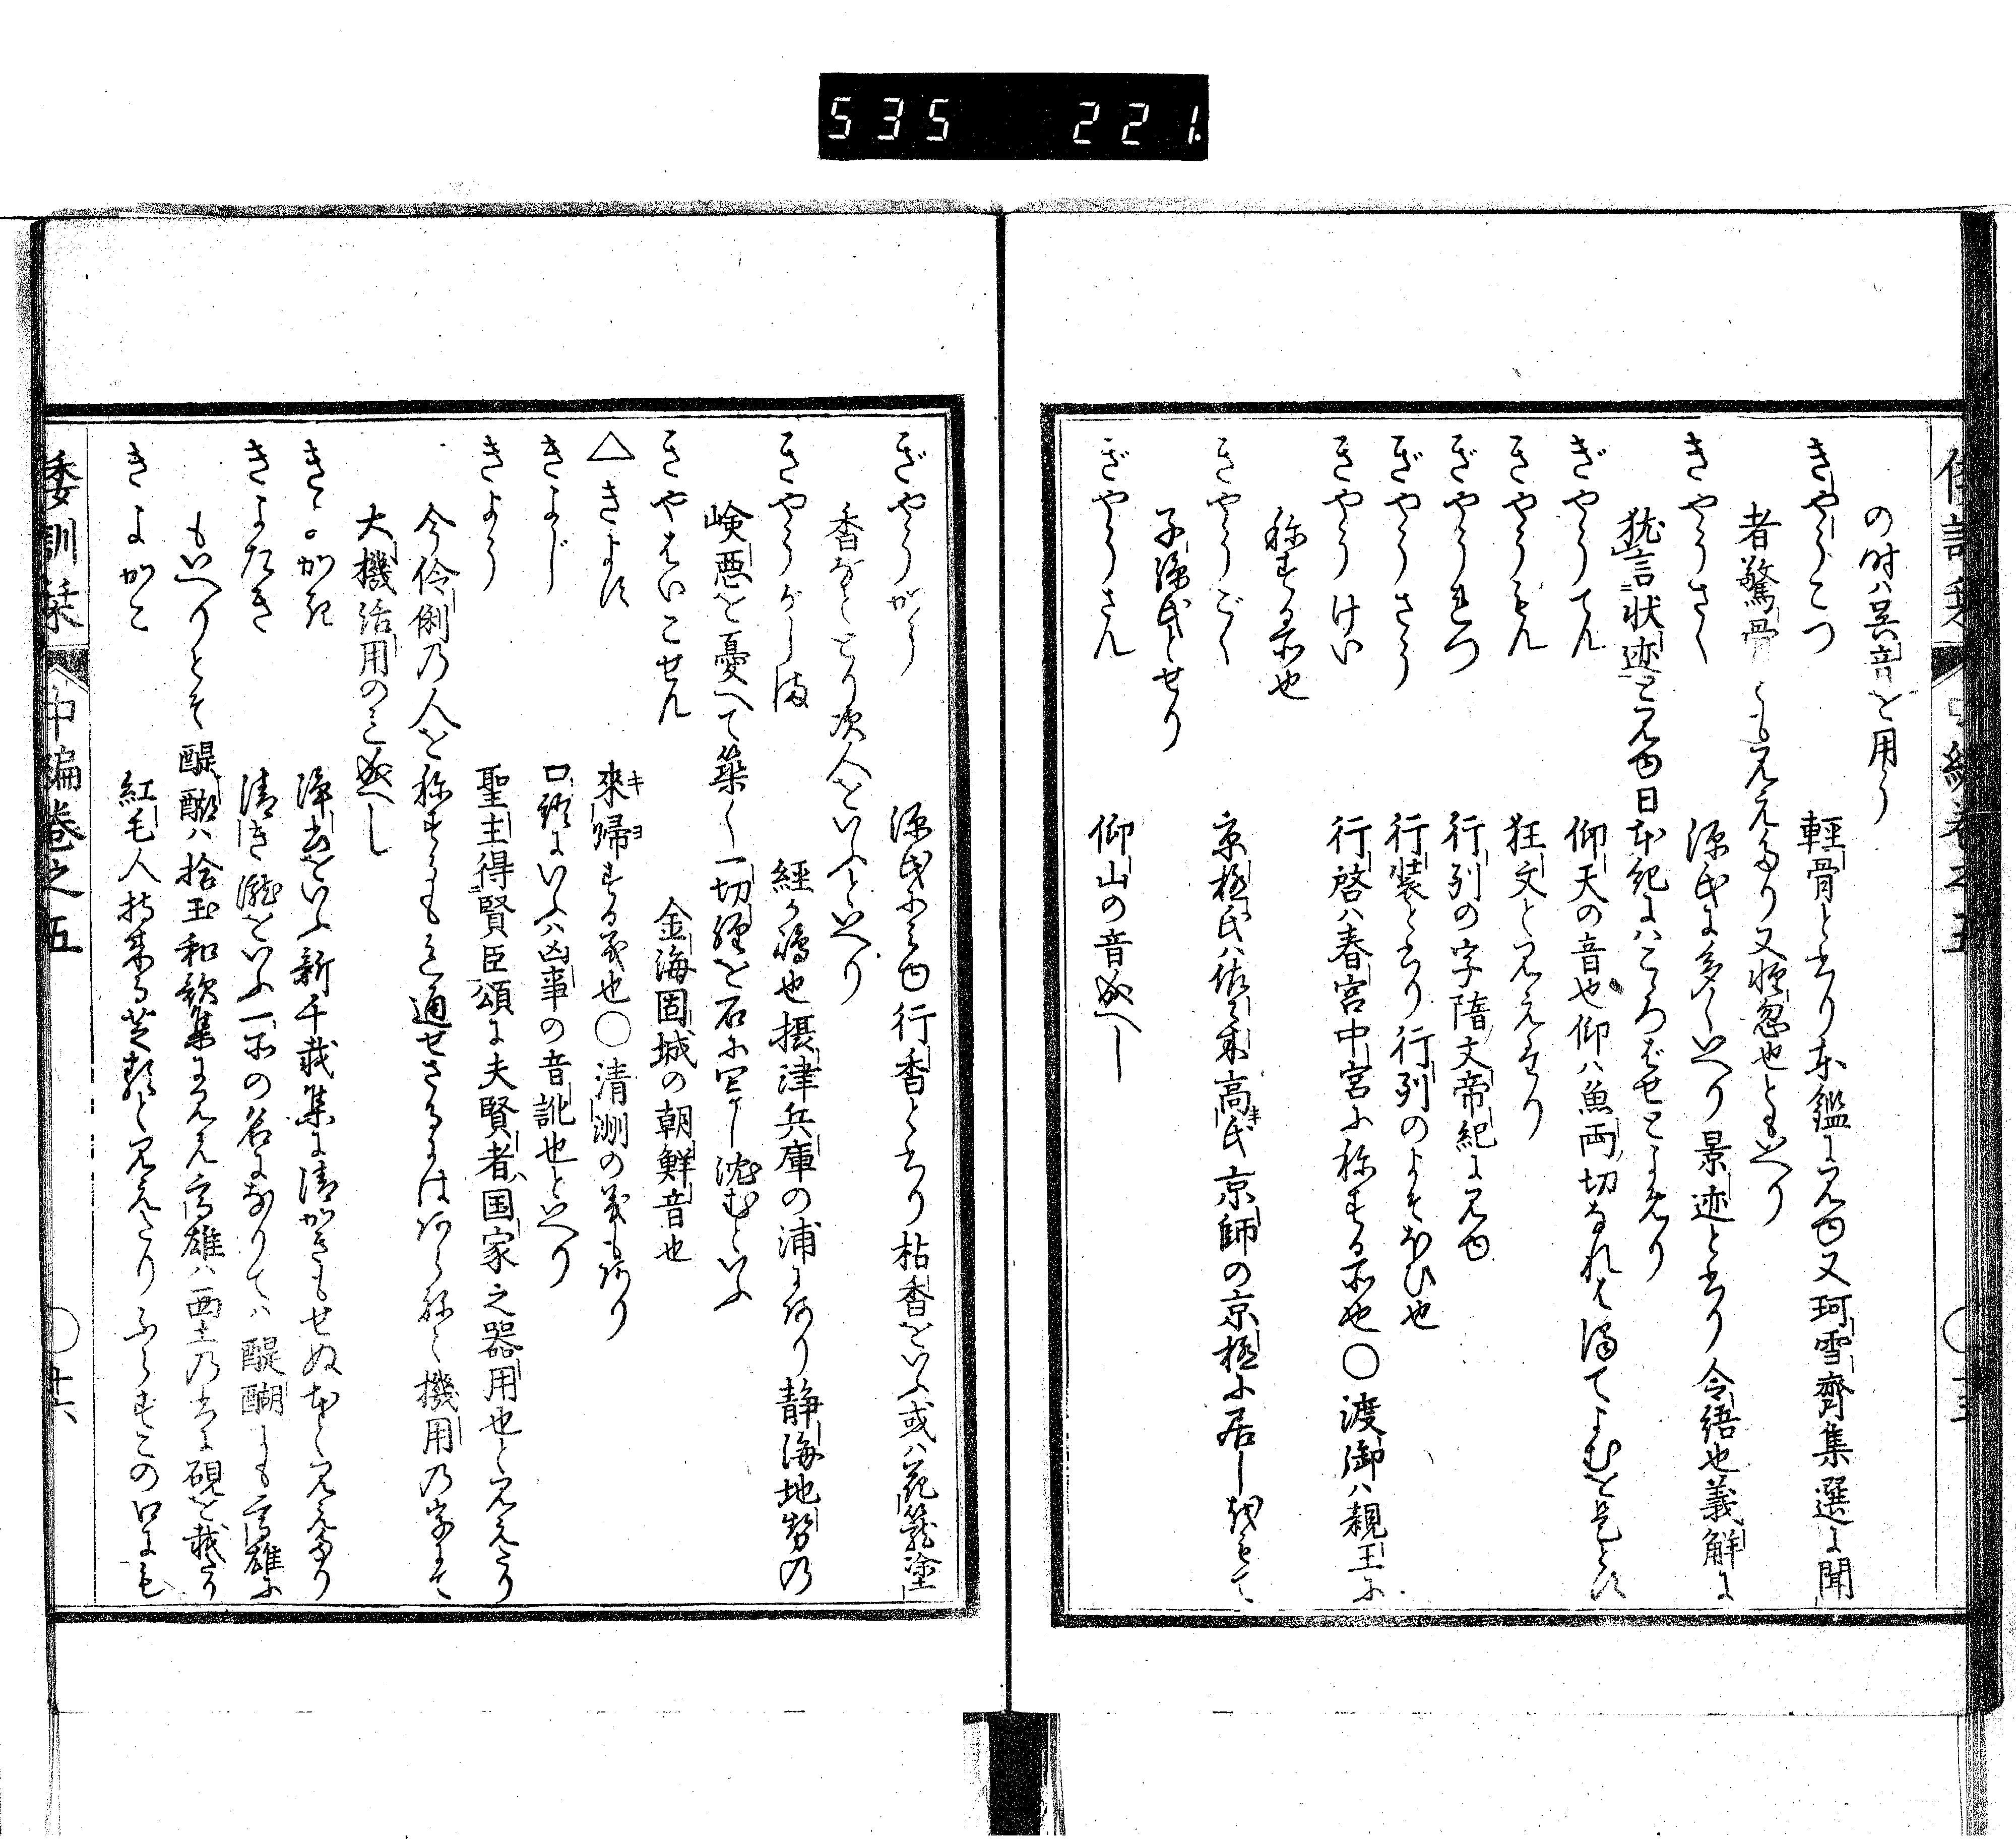 535 221.
の時ハ呉音を用う
きやうこつ 軽骨とかけり東鑑に見ゆ又珂雪齊集選に聞
者驚骨とも見えたり又軽忽也ともいへり
きやうさく 源氏に多くいへり景迹とかけり令語也義解に
猶言状迹と見ゆ日本紀にハこゝろばせとよめり
ぎやうてん 仰天の音也仰ハ魚両切なれハ濁てよむを是とす
きやうもん 狂文と見えたり
ぎやうれつ 行列の字隋文帝紀に見ゆ
ぎやうさう 行装とかけり行列のよそおひ也
きやうけい 行啓ハ春宮中宮に称する所也〇渡御ハ親王に
称する所也
きやうごく 京極氏ハ佐々木高氏京師の京極に居しをもて
子孫氏とせり
ぎやうさん 仰山の音成へし
ぎやうがう 源氏にみゆ行香とかけり拈香をいふ或ハ花籠塗
香などとり次人をいふといへり
きやうがしま 経か嶋也摂津兵庫の浦にあり静海地勢の
嶮悪を憂へて築く一切経を石に写し沈むといふ
きやはいこせん 金海固城の朝鮮音也
△きよす 來歸する義也〇清洲の義もあり
きよじ 口語にいふハ凶事の音訛也といへり
きよう 聖主得賢臣頌に夫賢者国家之器用也と見えたり
今伶俐乃人を称するにも通せさるにはあらねと機用乃字にて
大機活用のこと成へし
きよがき 浄書をいふ新千載集に清がきもせぬなと見えたり
きよたき 清き瀧をいふ一所の名になりてハ醍醐にも高雄に
もいへりとそ醍醐ハ拾玉和歌集に見え高雄ハ西土乃書に硯を載たり
きよがこ 紅毛人持来る芝類と見えたりふらすこの口にも
委訓栞 中編巻之五 〇十六